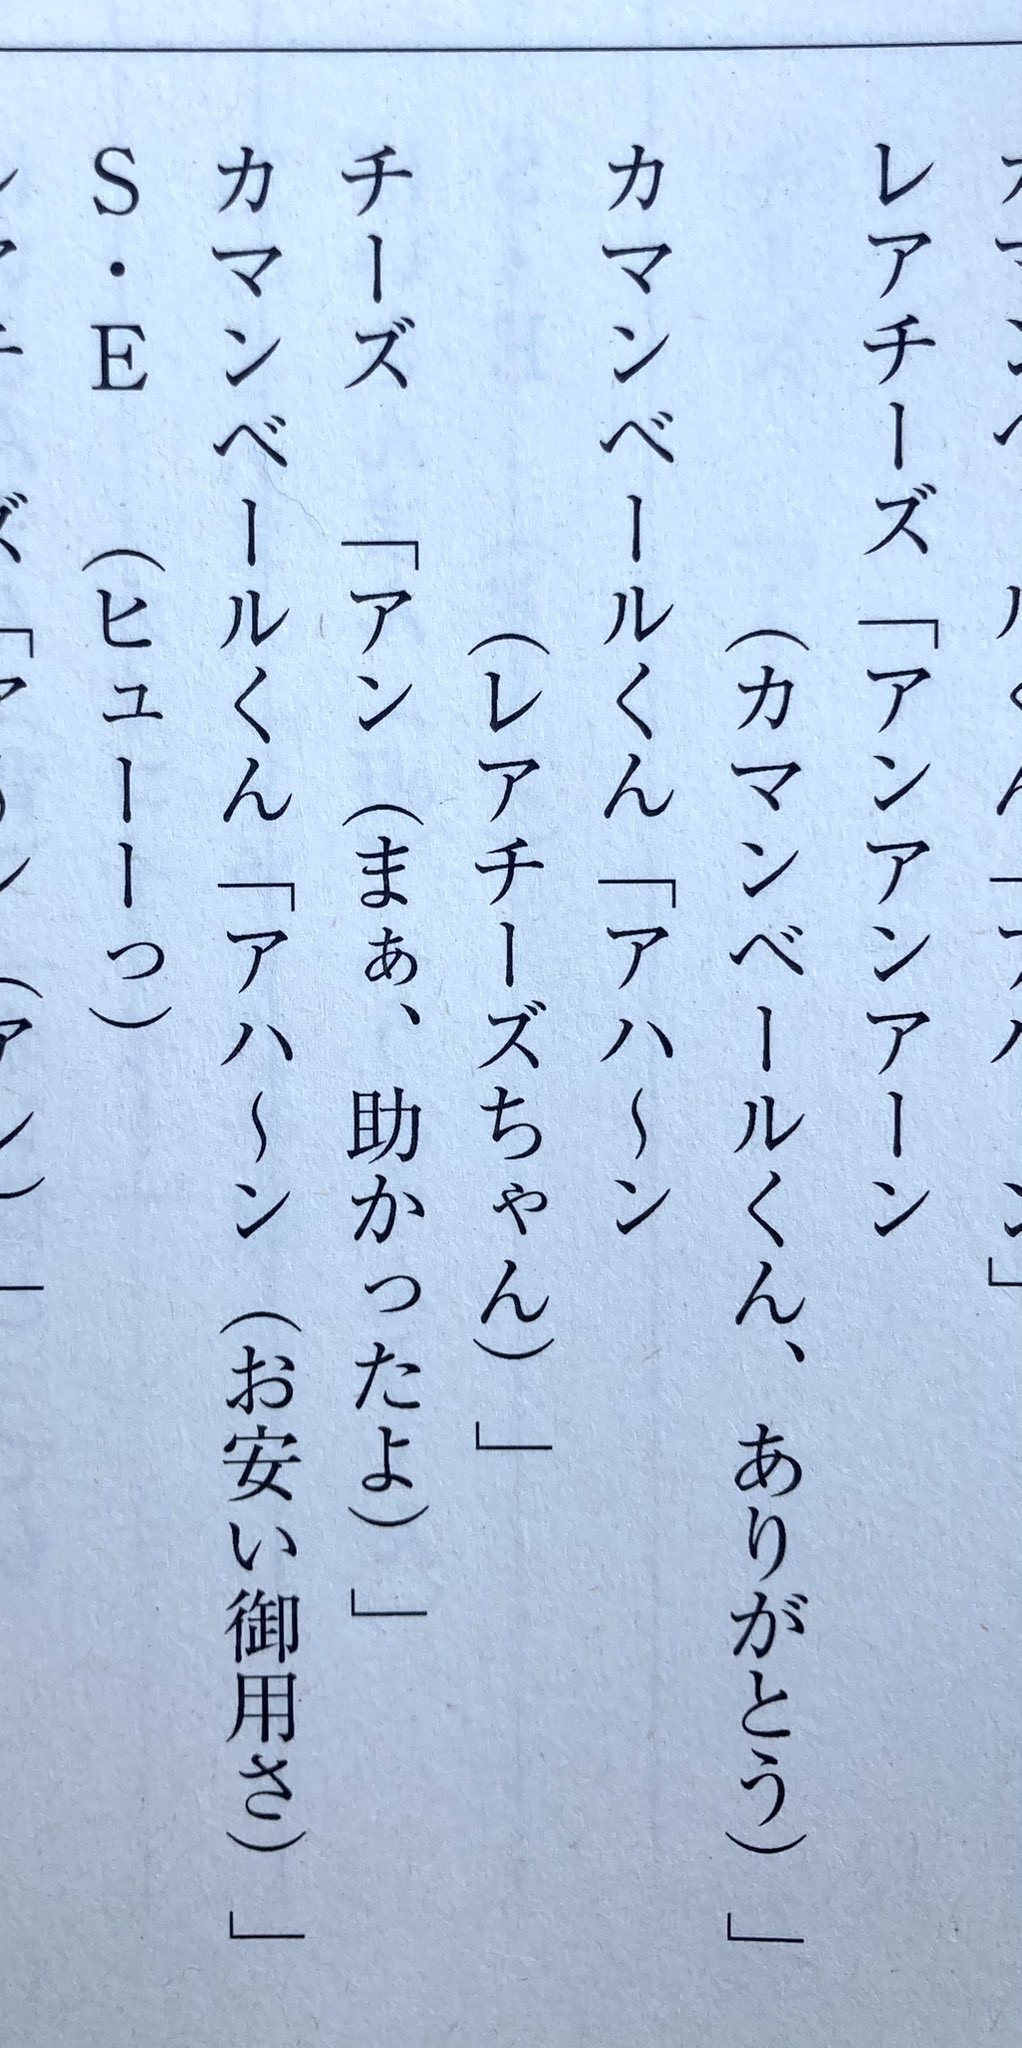 レアチーズ「アンアンアンアーン
(カマンベールくん、ありがとう)」
カマンベールくん「アハ〜ン
(レアチーズちゃん)」
チーズ 「アン(まぁ、助かったよ)」
カマンベールくん「アハ〜ン(お安い御用さ)」
S・E (ヒューーっ)